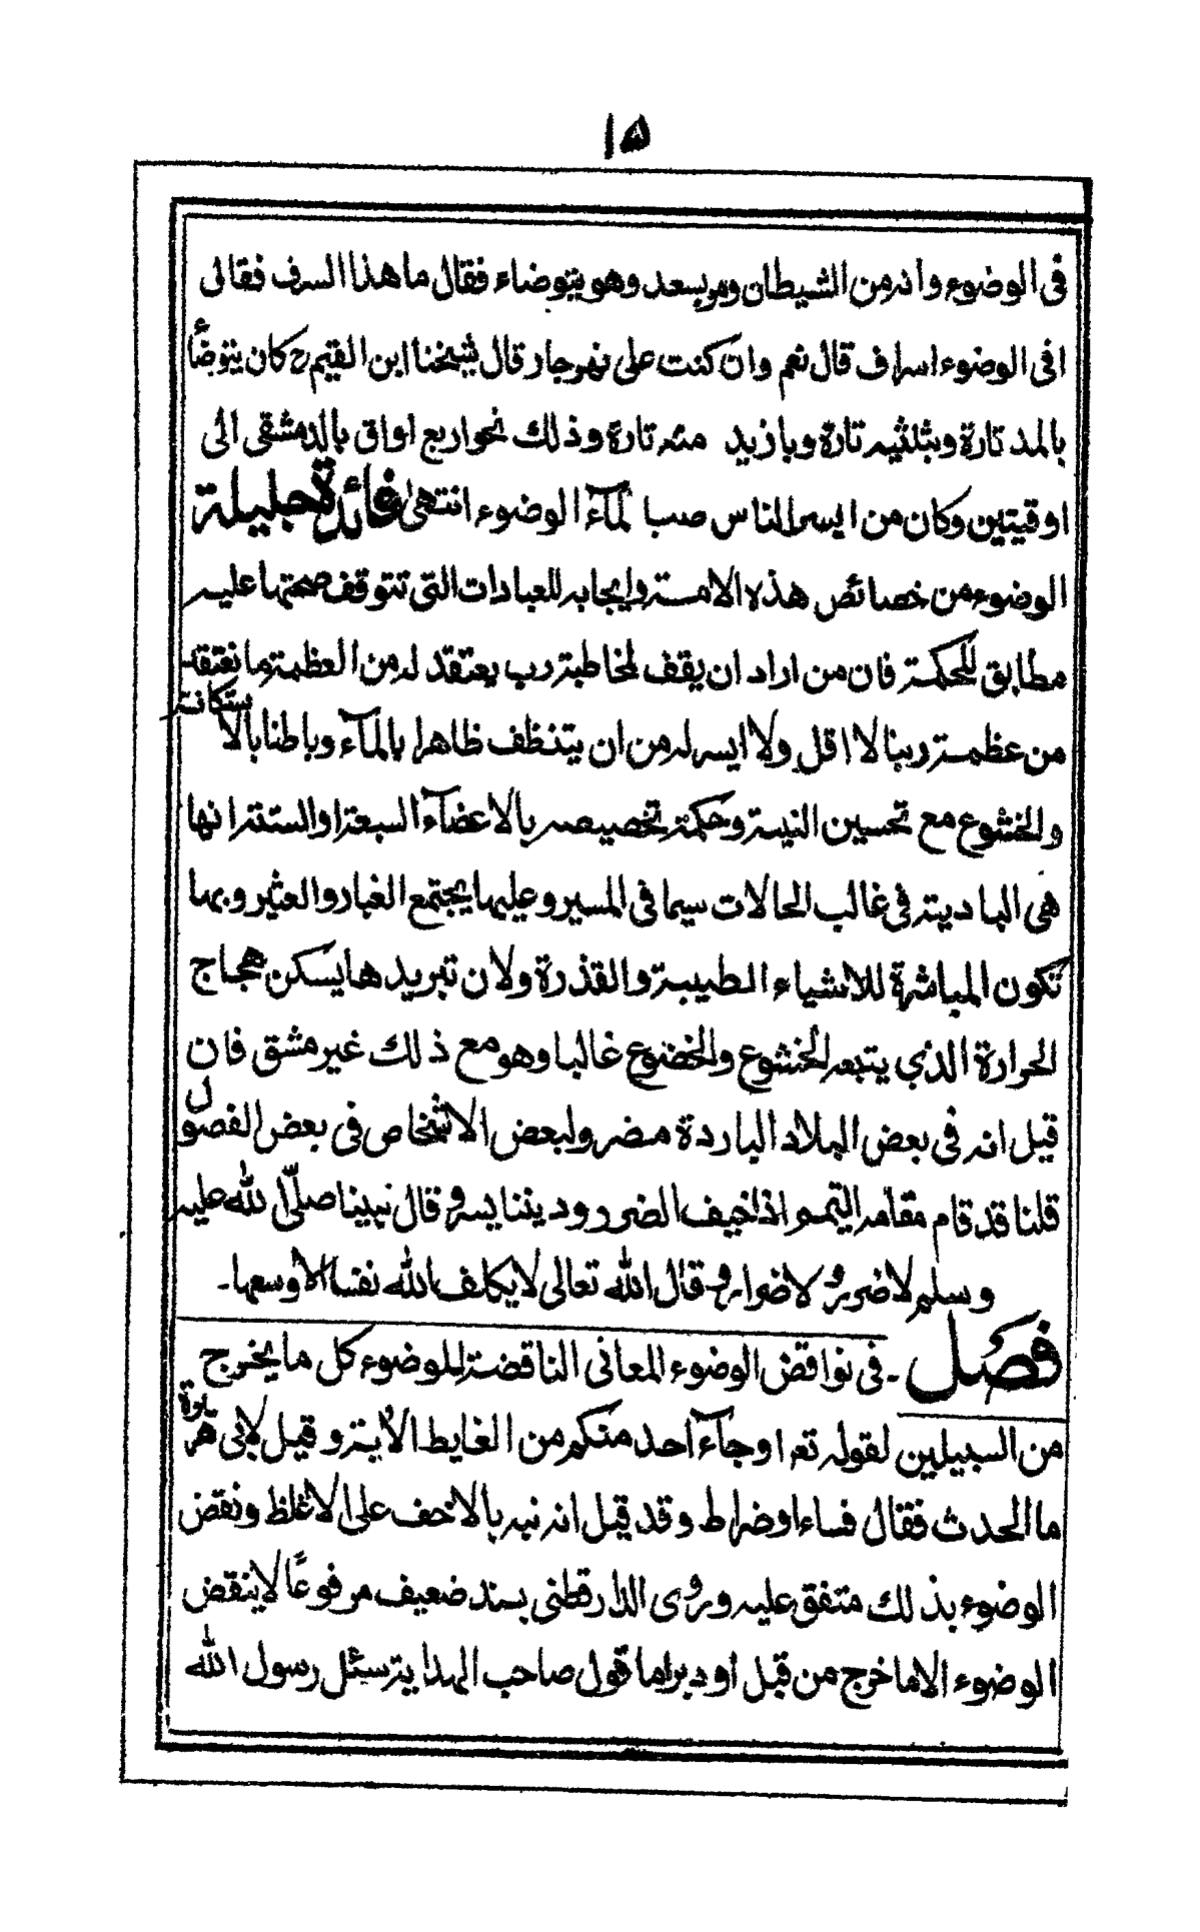 ١٥
فى الوضوء وانه من الشيطان ومر بسعد وهو يتوضاء فقال ما هذا السرف فقال
افى الوضوء اسراف قال نعم وان كنت على نهر جار قال شيخنا ابن القيم رح كان يتوضأ
بالمد تارة وبثلثيه تارة وبازيد منه تارة وذلك نحو اربع اواق بالدمشقى الى
اوقيتين وكان من ايسر الناس صبا لمآء الوضوء انتهى فائدة جليلة
الوضوء من خصائص هذه الامة وايجابه للعبادات التى تتوقف صحتها عليه
مطابق للحكمة فان من اراد ان يقف لمخاطبة رب يعتقد له من العظمة ما نعتقد
من عظمة ربنا لا اقل ولا ايسر له من ان يتنظف ظاهرا بالمآء وباطنا بالاستكانة
والخشوع مع تحسين النية وحكمة تخصيصه بالاعضآء السبعة او الستة انها
هى البادية فى غالب الحالات سيما فى المسير وعليها يجتمع الغبار والعثير وبها
تكون المباشرة للاشياء الطيبة والقذرة ولان تبريدها يسكن هجاج
الحرارة الذي يتبعه الخشوع والخضوع غالبا وهو مع ذلك غير مشق فان
قيل انه فى بعض البلاد الباردة مضر ولبعض الاشخاص فى بعض الفصول
قلنا قد قام مقامه التيمم اذا خيف الضرر وديننا يسر وقال نبينا صلّى الله عليه
وسلم لا ضرر ولا ضرار وقال الله تعالى لا يكلف الله نفسا الا وسعها۔
فصل ۔ فى نواقض الوضوء المعانى الناقضة للوضوء كل ما يخرج
من السبيلين لقوله تعر اوجآء احد منكم من الغايط الأية وقيل لابى هريرة
ما الحدث فقال فساء او ضراط وقد قيل انه نبه بالاخف على الاغلظ ونقض
الوضوء بذلك متفق عليه وروى الدارقطنى بسند ضعيف مرفوعًا لا ينقض
الوضوء الا ما خرج من قبل او دبر اما قول صاحب الهداية سئل رسول الله